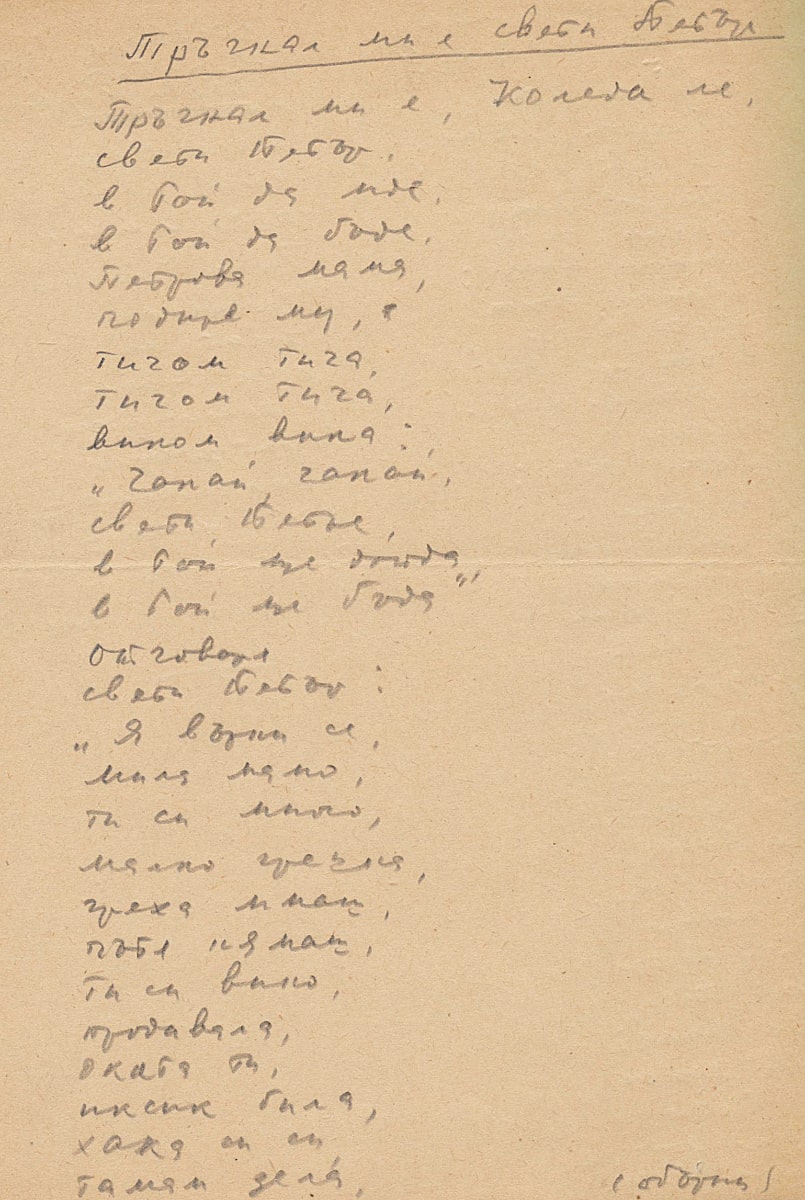 Тръгнал ми е свети Петър
Тръгнал ми е, Коледа ле,
свети Петър,
в Рай да иде,
в Рай да бъде,
Петрова мама,
подире му,
тичом тича,
тичом тича,
виком вика:
„Чакай, чакай,
свети Петре,
в Рай ще дойда,
в Рай ще бъда",
Отговаря
свети Петър:
„Я върни се,
мила мамо,
ти си много,
малко грешна,
греха имаш,
пътя нямаш,
ти си вино,
продавала,
Оката ти,
иксик била,
хака си си,
тамам зела,
(обърни)